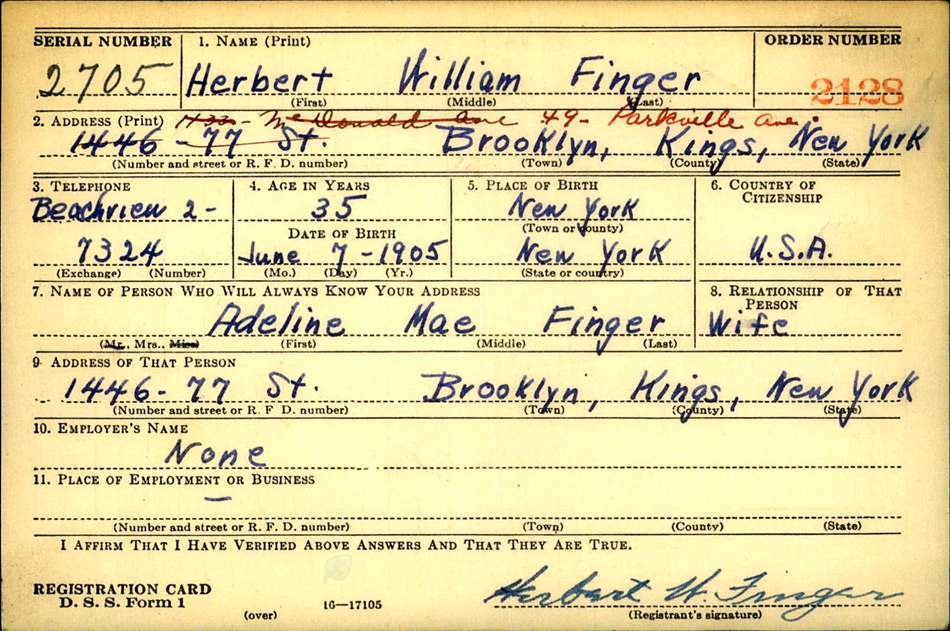 SERIAL NUMBER 1. NAME (Print) ORDER NUMBER
2705 Herbert William Finger 2128
(First) (Middle) (Last)
2. ADDRESS (Print) Mc Donald Ave 49- Parkville Ave.
1446 - 77 St. Brooklyn, Kings, New York
(Number and street or R. F. D. number) (Town) (County) (State)
3. TELEPHONE 4. AGE IN YEARS 5. PLACE OF BIRTH 6. COUNTRY OF CITIZENSHIP
Beachview 2- 35 New York
DATE OF BIRTH (Town or county)
7324 June 7-1905 New York U.S.A.
(Exchange) (Number) (Mo.) (Day) (Yr.) (State or country)
7. NAME OF PERSON WHO WILL ALWAYS KNOW YOUR ADDRESS 8. RELATIONSHIP OF THAT PERSON
Adeline Mae Finger Wife
(Mr., Mrs., Miss) (First) (Middle) (Last)
9. ADDRESS OF THAT PERSON
1446- 77 St. Brooklyn, Kings, New York
(Number and street or R. F. D. number) (Town) (County) (State)
10. EMPLOYER'S NAME
None
11. PLACE OF EMPLOYMENT OR BUSINESS
—
(Number and street or R. F. D. number) (Town) (County) (State)
I AFFIRM THAT I HAVE VERIFIED ABOVE ANSWERS AND THAT THEY ARE TRUE.
REGISTRATION CARD Herbert W. Finger
D. S. S. Form 1 (over) 16—17105 (Registrant's signature)